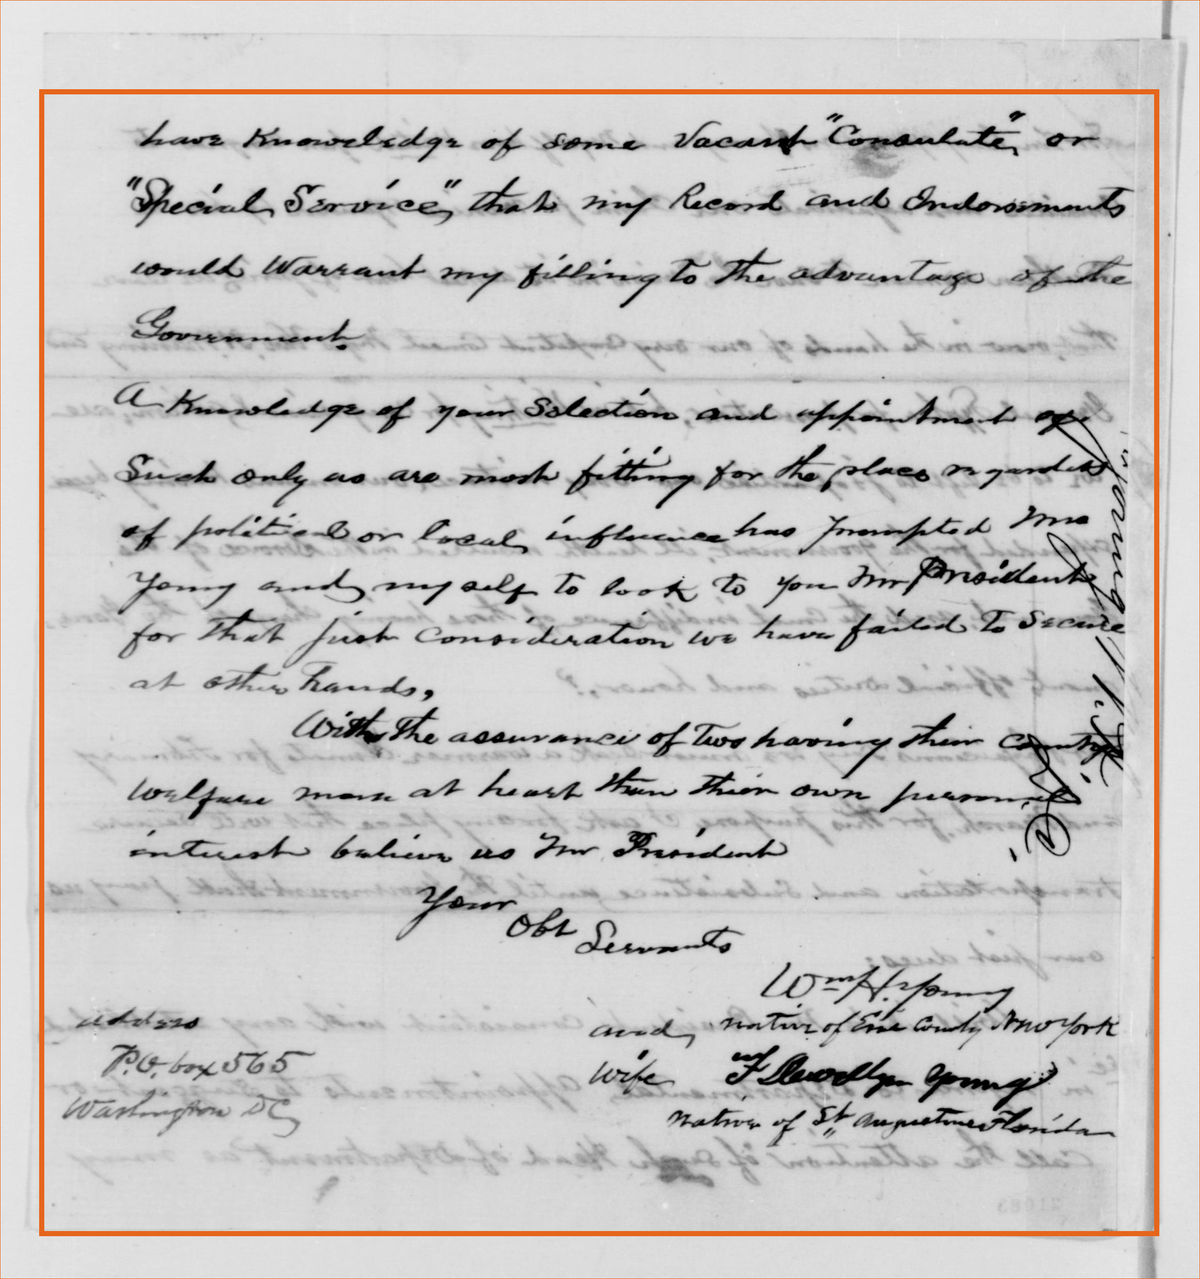 have Knowledge of some Vacant "Consulate", or
"Special Service", that my Record and Endorsments
would Warrant my filling to the advantage of the
Government.
A Knowledge of your Selection and appointment of
Such only as are most fitting for the place regardless
of political or local influence has prompted Mrs
Young and myself to look to you Mr President
for that just consideration we have failed to secure
at other hands,
With the assurance of two having their country
welfare more at heart than their own personal
interest believe us Mr President
Your
Obt
Servants
Wm H. Young
and native of Erie County New York
wife F Llewellyn Young
native of St Augustine Florida
address
P.O. box 565
Washington DC
Young